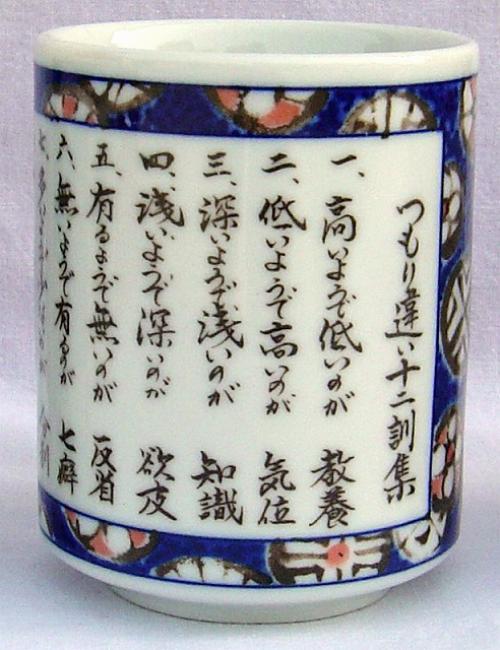 つもり違い十二訓集
一、高いようで低いのが 教養
二、低いようで高いのが 気位
三、深いようで浅いのが 知識
四、浅いようで深いのが 欲皮
五、有るようで無いのが 反省
六、無いようで有るのが 七癖
七、